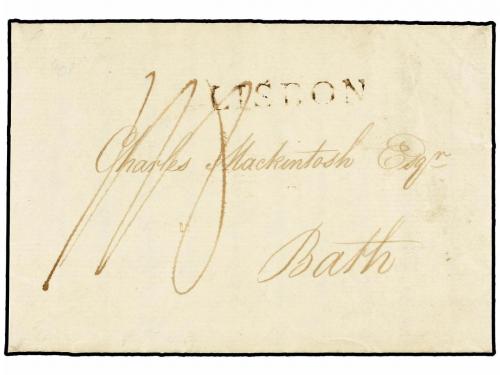 LISBON
Charles Mackintosh Esqr
Bath